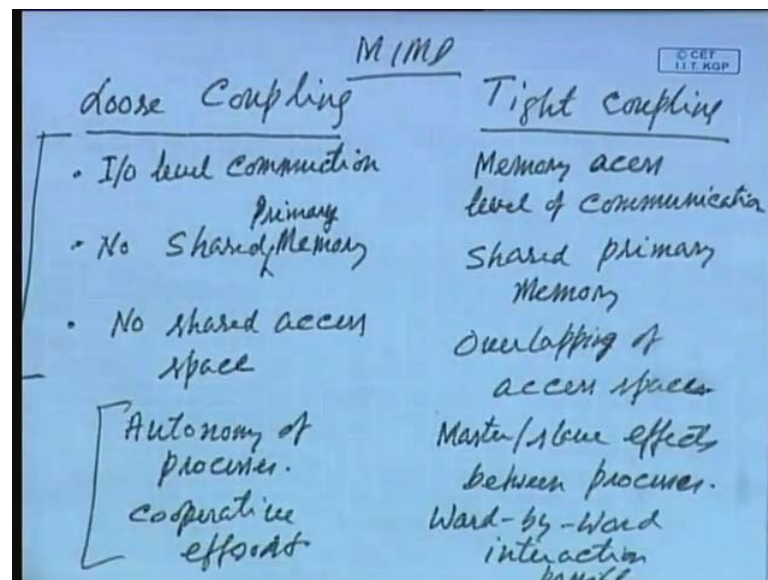 MIMD
© CET
I.I.T. KGP
Loose Coupling
• I/O level Commuction
Primary
• No Shared Memory
• No shared access
space
Autonomy of
processes.
cooperative
efforts
Tight coupling
Memory acess
level of communication
Shared primary
Memory
Overlapping of
access spaces
Master/slave effects
between processes.
Word-by-Word
interaction